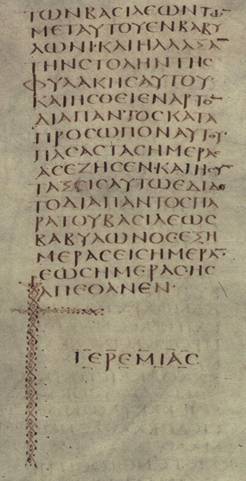 ΤΩΝΒΑCΙΛΕΩΝΤΩ̅
ΜΕΤΑΥΤΟΥΕΝΒΑΒΥ
ΛΩΝΙ·ΚΑΙΗΛΛΑΞΑ
ΤΗΝCΤΟΛΗΝΤΗC
ΦΥΛΑΚΗCΑΥΤΟΥ·
ΚΑΙΗCΘΙΕΝΑΡΤΟ̅
ΔΙΑΠΑΝΤΟCΚΑΤΑ
ΠΡΟCΩΠΟΝΑΥΤΟΥ
ΠΑCΑCΤΑCΗΜΕΡΑC
ΑCΕΖΗCΕΝ·ΚΑΙΗCΥ
ΤΑΞΙCΑΥΤΩΕΔΙΔΟ
ΤΟΔΙΑΠΑΝΤΟCΠΑ
ΡΑΤΟΥΒΑCΙΛΕΩC
ΒΑΒΥΛΩΝΟCΕΞΗ
ΜΕΡΑCΕΙCΗΜΕΡΑ̅
ΕΩCΗΜΕΡΑCΗC
ΑΠΕΘΑΝΕΝ·
ΙΕΡΕΜΙΑC